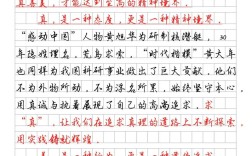 真善美，才能达到崇高的精神境界。
真，是一种态度，更是一种精神境界。
“感动中国”人物黄旭华为研制核潜艇，30
年隐姓埋名，荒岛求索，“时代楷模”黄大年
也同样为我国科研事业做出了巨大贡献，他们
不为外物所动，不为浮名所累，始终坚守本心，
用真诚与执着展现了自己的高尚追求，求
“真”，让我们在追求真理的道路上不断探索，
用实践铸就辉煌。